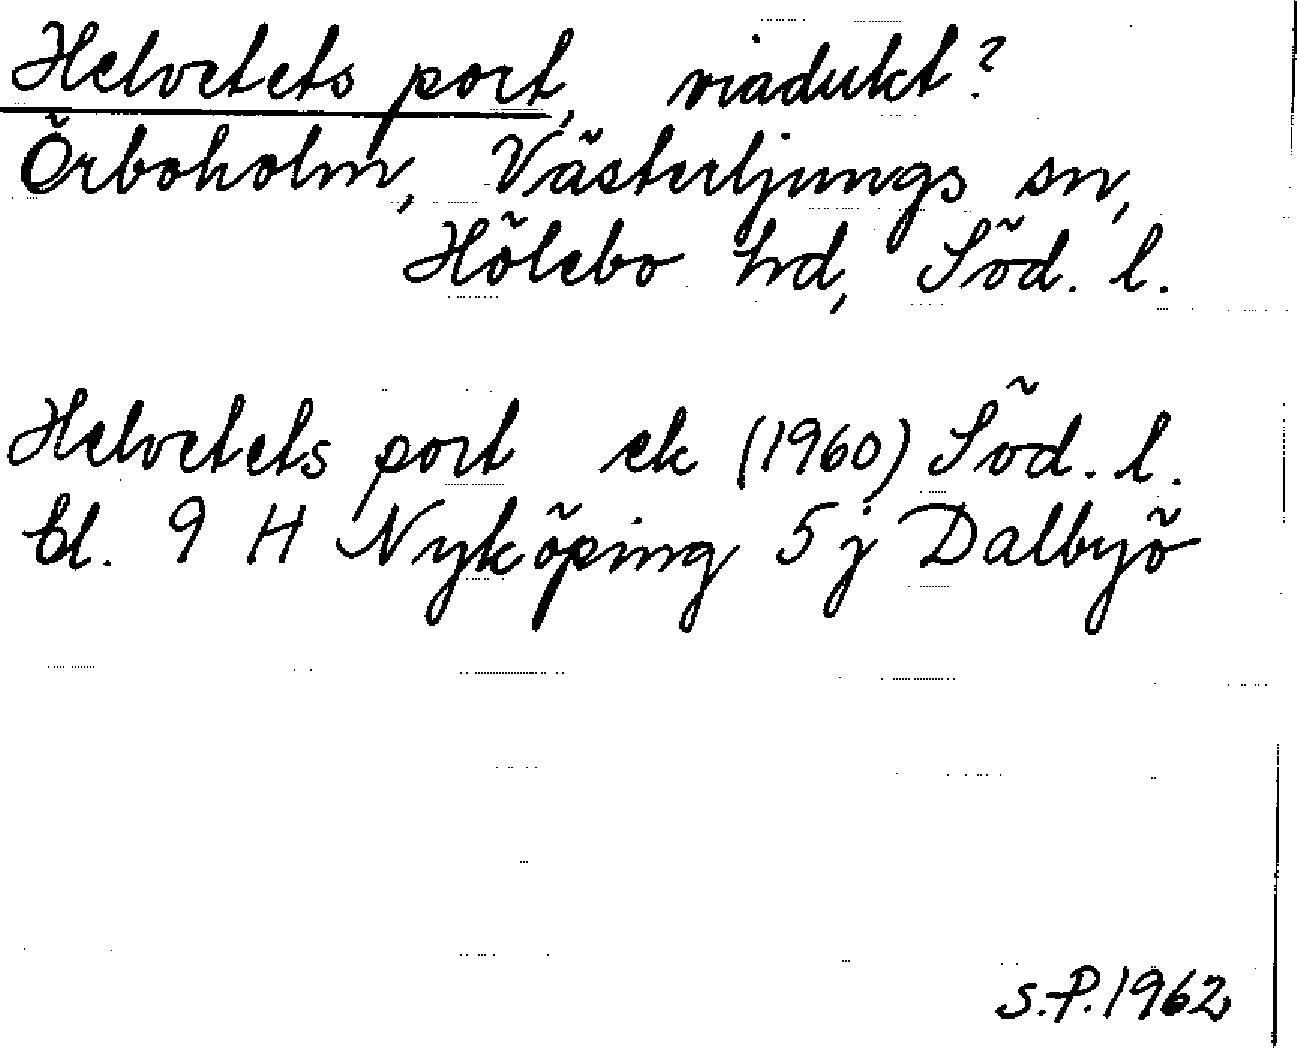 Helvetets port, viadukt?
Örboholm, Västerljungs sn,
Hölebo hd, Söd. l.
Helvetets port ek (1960) Söd. l.
bl. 9 H Nyköping 5 j Dalbyö
S.P. 1962